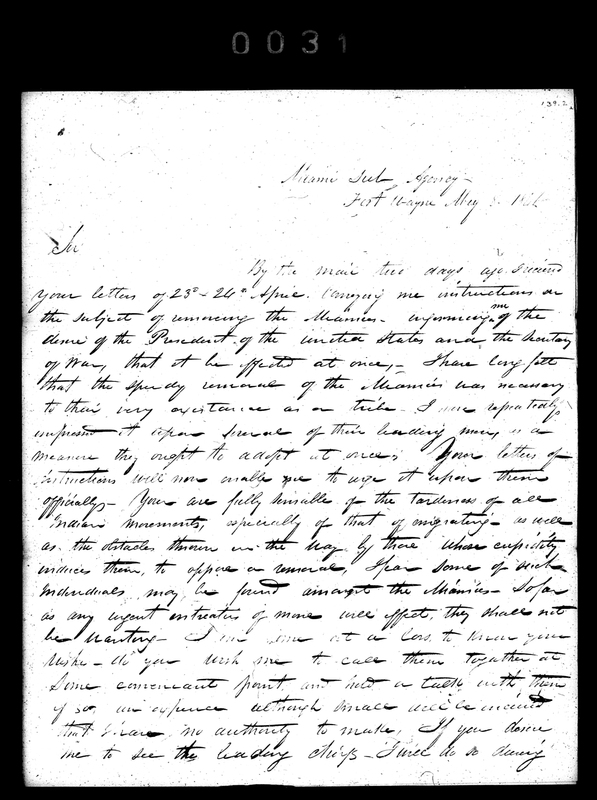 0031
139.2
Miami Sub Agency
Fort Wayne May 1844
Sir
By the mail two days ago I received
your letters of 23d & 24th April Conveying me instructions on
the subject of removing the Miamies - informing me of the
desire of the President of the United States and the Secretary
of War, that it be effected at once, - I have long felt
that the speedy removal of the Miamies was necessary
to their very existance as a tribe - I have repeatedly
impressed it upon several of their leading men, as a
measure they ought to adopt at once, Your letters of
instructions will now enable me to urge it upon them
officially - You are fully sensible of the tardiness of all
Indian movements, especially of that of migrating - as well
as the obstacles thrown in the way by those whose cupidity
induces them, to oppose a removal, I fear some of such
individuals may be found amongst the Miamies - So far
as any urgent entreaties of mine will effect, they shall not
be wanting - I am at a loss to know your
wishes - do you wish me to call them together at
some convenient point and hold a talk with them
if so, an expence although small will be incurred
that I have no authority to make, If you desire
me to see the leading chiefs - I will do so during